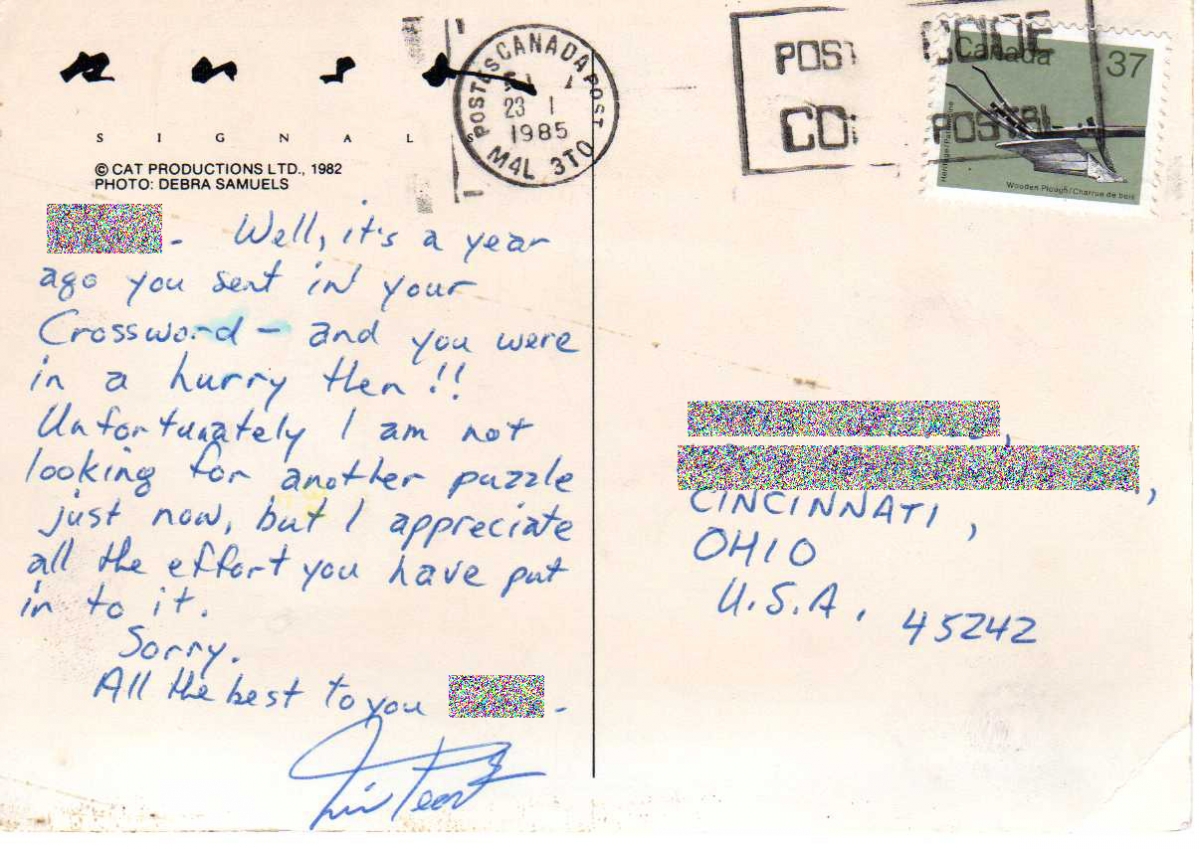 S I G N A L S
© CAT PRODUCTIONS LTD., 1982
PHOTO: DEBRA SAMUELS
POSTES CANADA POST
23 I
1985
M4L 3T0
POSTAL
Canada
37
Heritage/Patrimoine
Wooden Plough/Charrue de bois
- Well, it's a year
ago you sent in your
Crossword - and you were
in a hurry then !!
Unfortunately I am not
looking for another puzzle
just now, but I appreciate
all the effort you have put
in to it.
Sorry.
All the best to you -
CINCINNATI,
OHIO
U.S.A. 45242